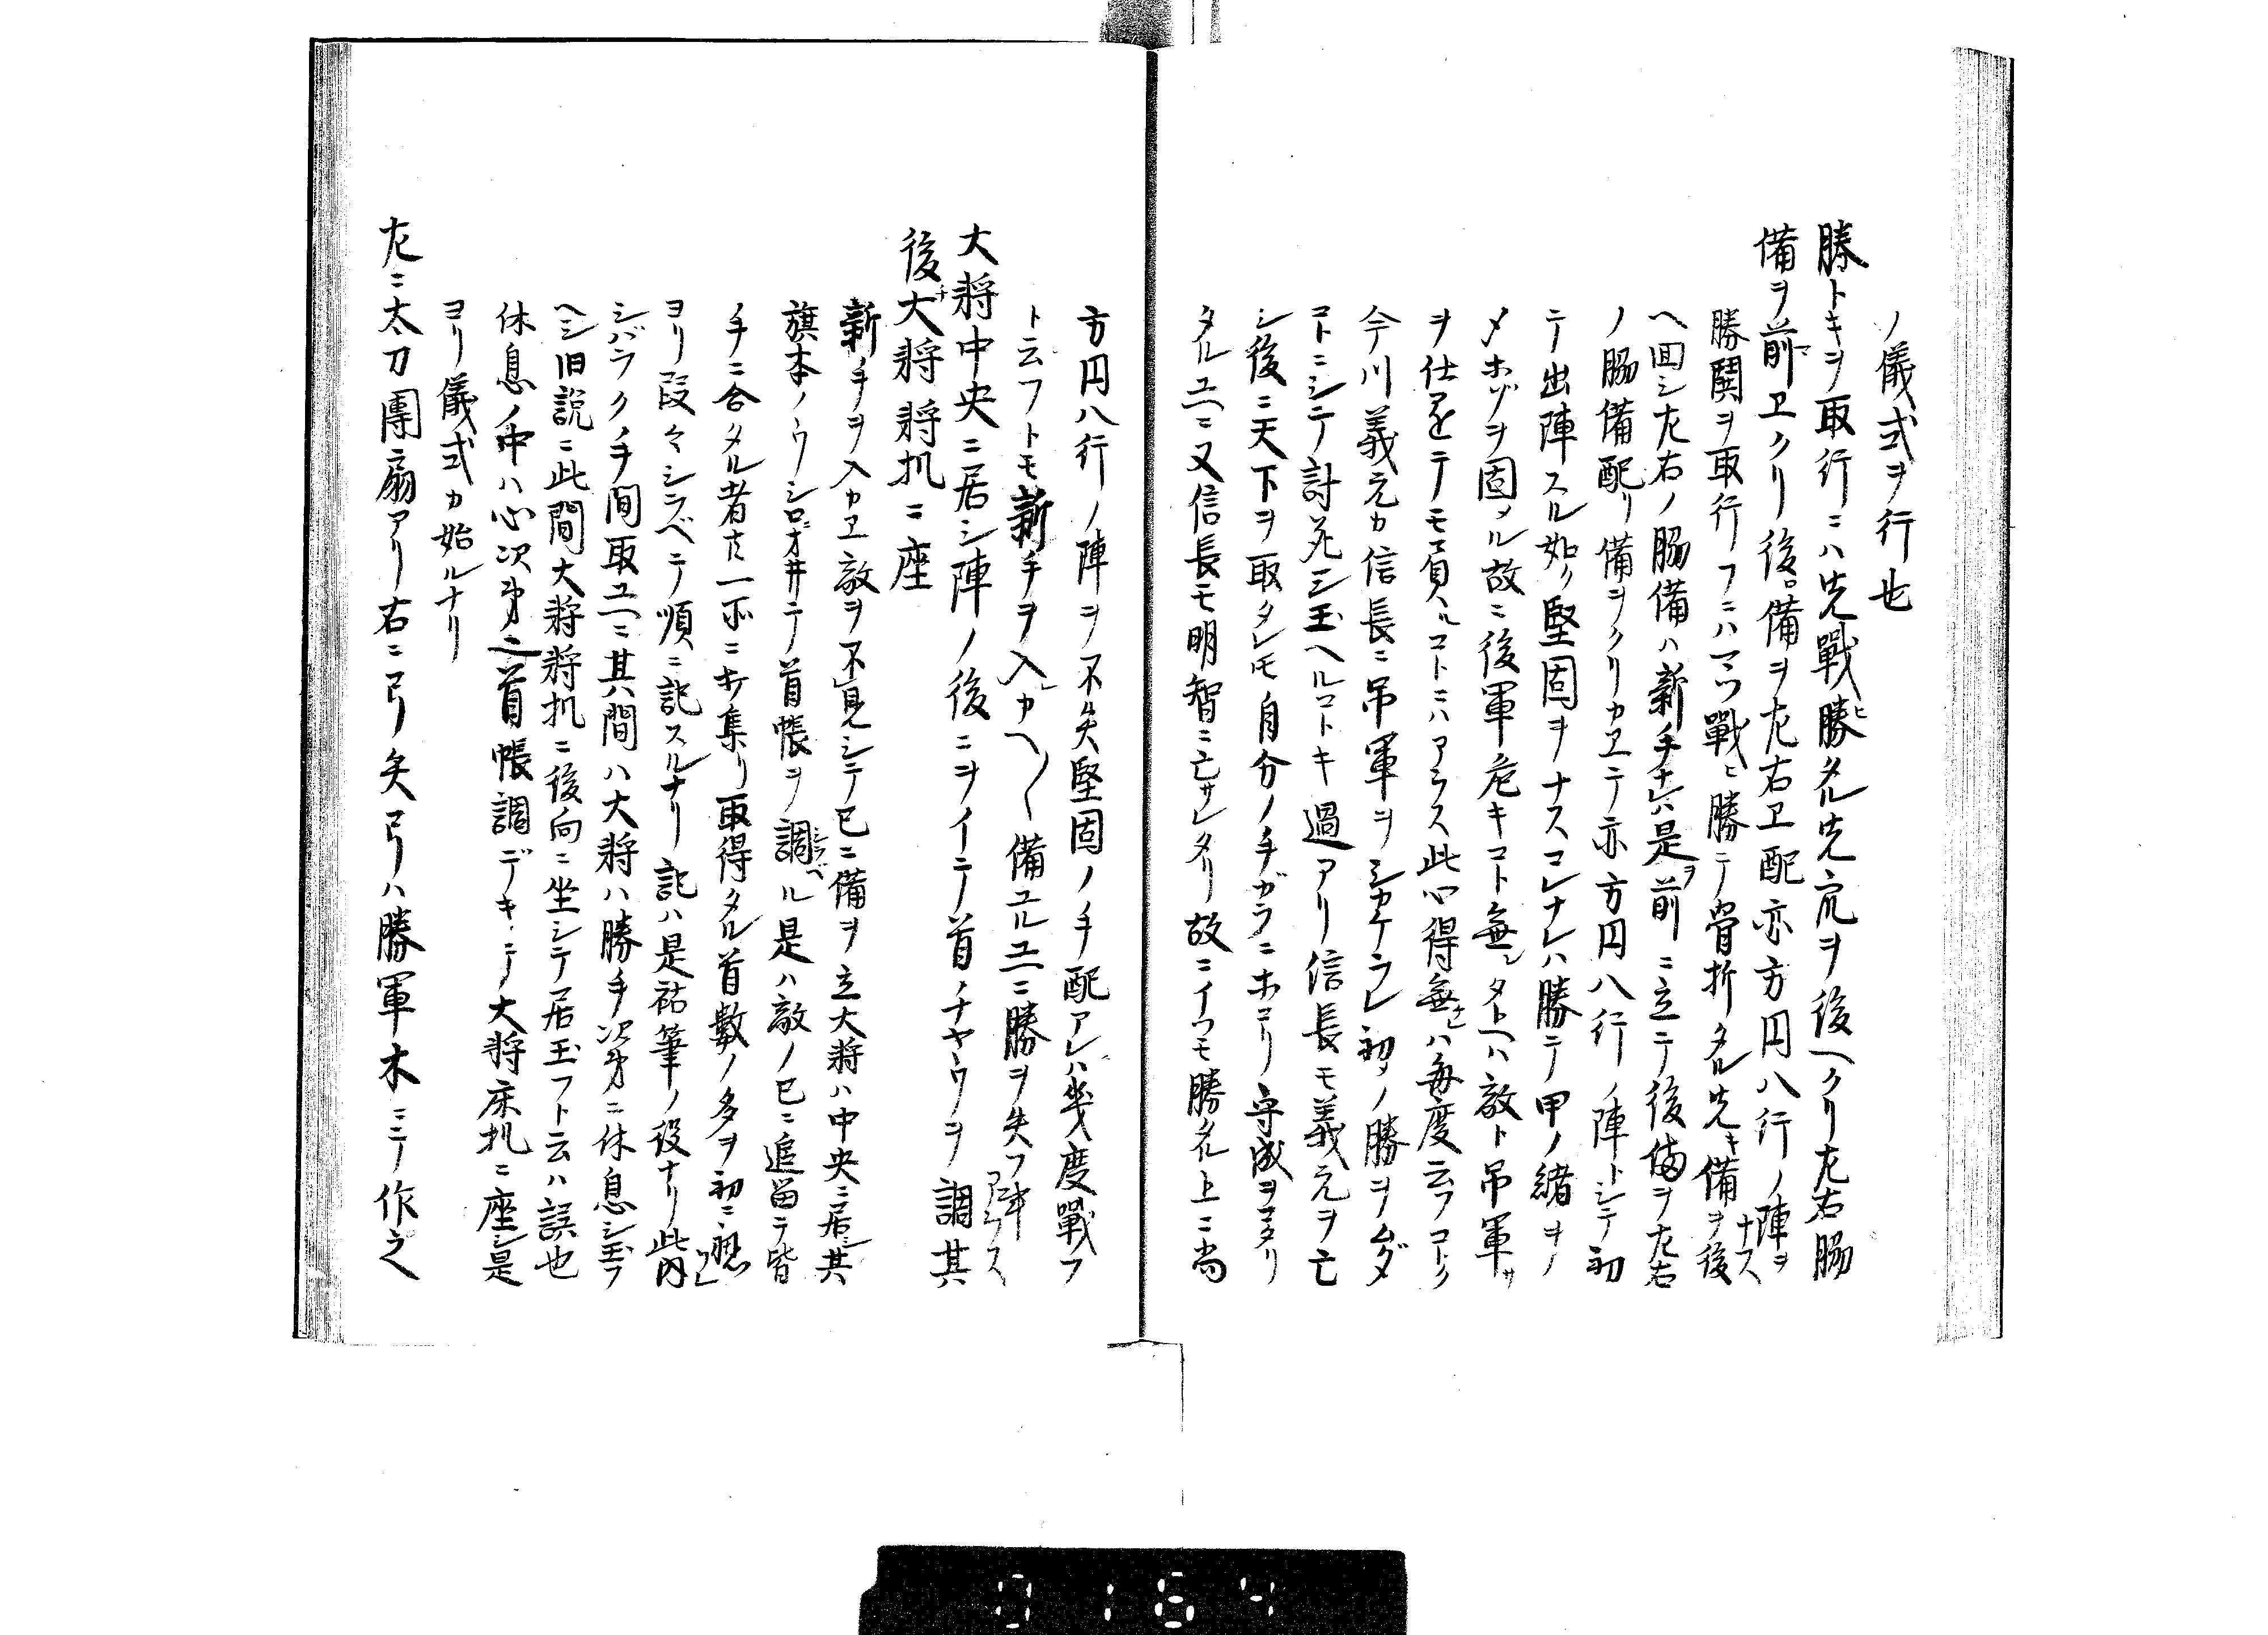 ノ儀式ヲ行也
勝トキヲ取行ニハ先戰勝ヒタル先㐬ヲ後ヘクリ左右脇
備ヲ前マヱクリ後ロ備ヲ左右ヱ配亦方円八行ノ陣ヲナス
勝鬨ヲ取行フニハマツ戰ヒ勝テ骨折タル先キ備ヲ後
ヘ回シ左右ノ脇備ハ新手ナレハ是ヲ前ニ立テ後備ヲ左右
ノ脇備配リ備ヲクリカヱテ亦方円八行ノ陣トシテ初
テ出陣スル如ク堅固ヲナスコレナレハ勝テ甲ノ緒ヲシ
メホゾヲ固メル故ニ後軍危キコト無シタトヘハ敵ト吊軍サ
ヲ仕逐テモ負ルコトニハアラス此心得無ケレハ毎度云フコトク
今川義元カ信長ニ吊軍ヲシカケラレ初メノ勝ヲムダ
コトニシテ討死シ玉ヘルコトキ過アリ信長モ義元ヲ亡
シ後ニ天下ヲ取タレ𪜈自分ノ手ガラニホコリ守成ヲヲコタリ
タルユヘニ又信長モ明智ニ亡サレタリ故ニイツモ勝タル上ニ尚
方円八行ノ陣ヲ不失堅固ノ手配アレハ幾度戰フ
ト云フトモ新手ヲ入カヘ〱備ユルユヘニ勝ヲ失フ𫝂アラス
大將中央ニ居シ陣ノ後ニヲイテ首ノチヤウヲ調其
後チ大將將机ニ座
新手ヲ入カヱ敵ヲ不見シテ已ニ備ヲ立大將ハ中央ニ居シ其
旗本ノウシロニオ井テ首帳ヲ調シラベル是ハ敵ノ已ニ追畄テ皆
手ニ合タル者𪜈一所ニキ集リ取得タル首數ノ多ヲ初ニ認ツレ
ヨリ段々シラベテ順ニ記スルナリ記ハ是祐筆ノ役ナリ此内
シバラクノ手間取ユヘニ其間ハ大將ハ勝手次㐧ニ休息シ玉フ
ヘシ旧説ニ此間大將將机ニ後向ニ坐シテ居玉フト云ハ誤也
休息ノ中ハ心次㐧之首帳調デキテ大將床机ニ座シ是
ヨリ儀式カ始ルナリ
左ニ太刀團扇アリ右ニ弓矢弓ハ勝軍木ニテ作之
0164